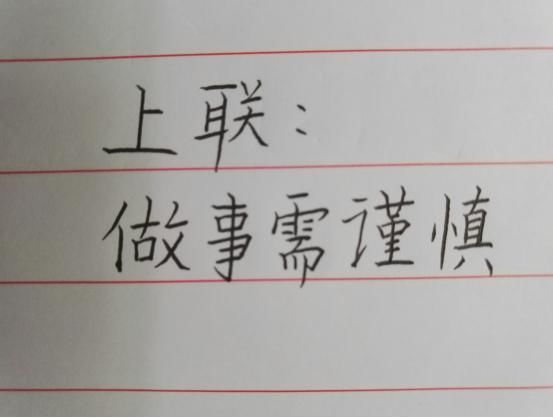 上联：
做事需谨慎